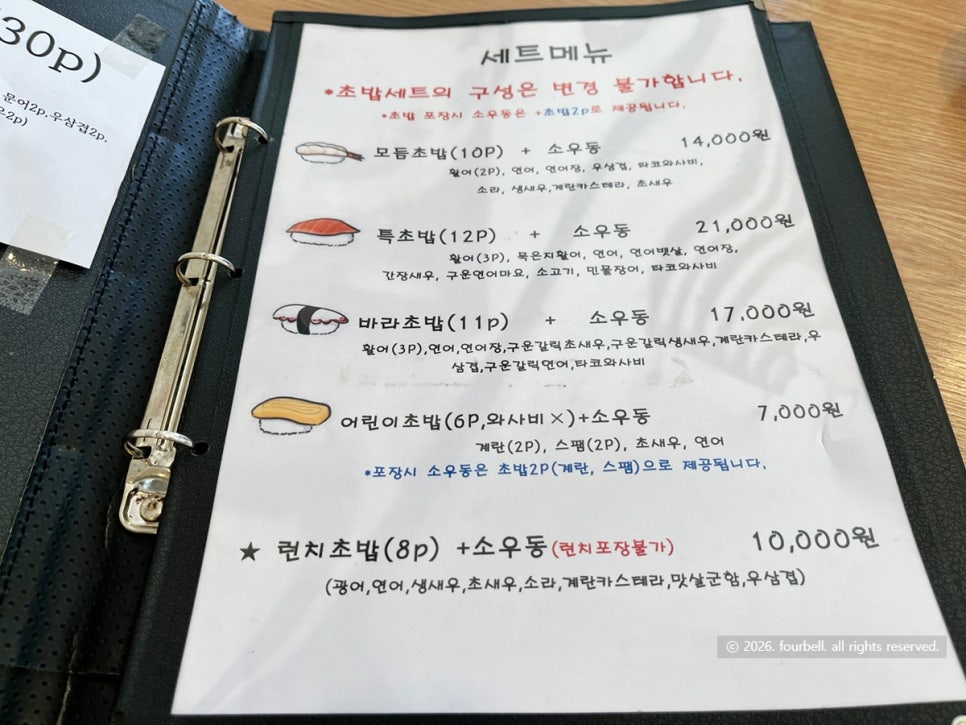 30p)
문어2p.우삼겹2p.
2p)
세트메뉴
*초밥세트의 구성은 변경 불가합니다.
*초밥 포장시 소우동은 +초밥2p로 제공됩니다.
모듬초밥(10P) + 소우동 14,000원
활어(2P), 연어, 연어장, 우삼겹, 타코와사비,
소라, 생새우,계란카스테라, 초새우
특초밥(12P) + 소우동 21,000원
활어(3P), 묵은지활어, 연어, 연어뱃살, 연어장,
간장새우, 구운연어마요, 소고기, 민물장어, 타코와사비
바라초밥(11p) + 소우동 17,000원
활어(3P),연어,연어장,구운갈릭초새우,구운갈릭생새우,계란카스테라,우
삼겹,구운갈릭연어,타코와사비
어린이초밥(6P,와사비×)+소우동 7,000원
계란(2P), 스팸(2P), 초새우, 연어
*포장시 소우동은 초밥2P(계란, 스팸)으로 제공됩니다.
★ 런치초밥(8p) +소우동(런치포장불가) 10,000원
(광어,연어,생새우,초새우,소라,계란카스테라,맛살군함,우삼겹)
ⓒ 2026. fourbell. all rights reserved.